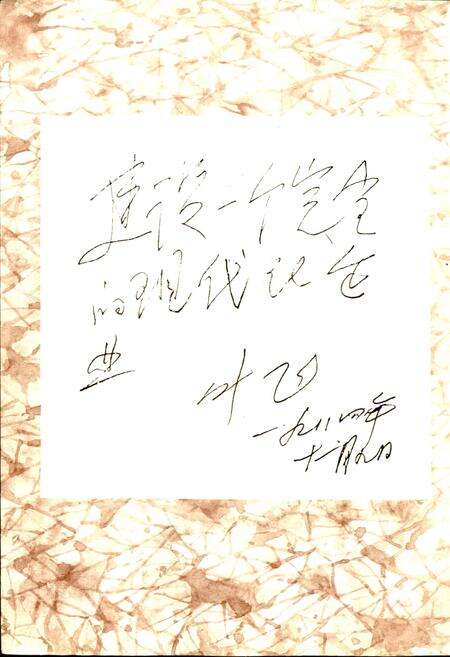 建设一个完全
的现代化企
业
叶飞
一九八四年
十一月九日